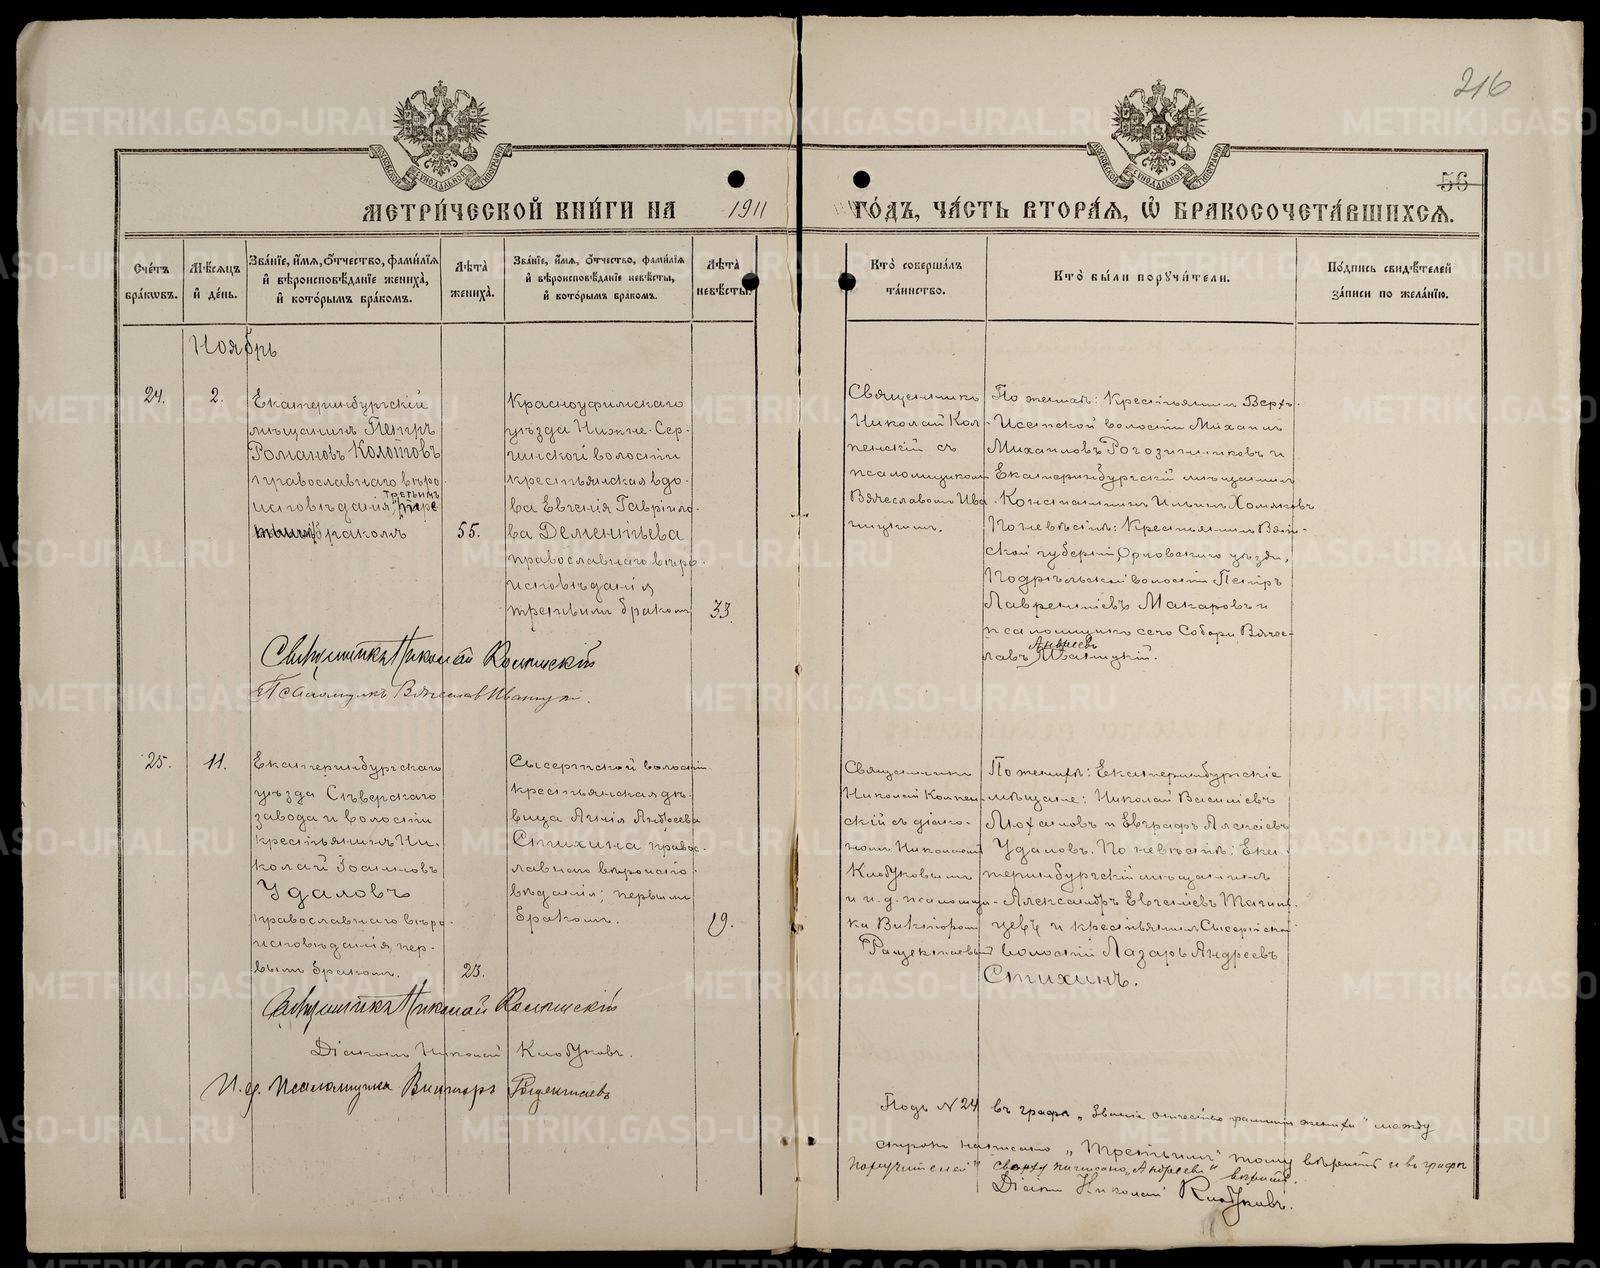 216
56
МЕТРИ́ЧЕСКОЙ КНИ́ГИ НА 1911 ГО́ДЪ, ЧА́СТЬ ВТОРА́Я, Ѽ БРАКОСОЧЕТА́ВШИХСЯ.
Сче́тъ бра́кѡвъ.
Мѣ́сяцъ и҆ де́нь.
Зва́нїе, и҆́мя, ѻ҆́тчество, фами́лїя и҆ вѣроисповѣ́данїе жениха̀, и҆ кото́рымъ бра́комъ.
Лѣ́та жениха̀.
Зва́нїе, и҆́мя, ѻ҆́тчество, фами́лїя и҆ вѣроисповѣ́данїе невѣ́сты, и҆ кото́рымъ бра́комъ.
Лѣ́та невѣ́сты.
Кто̀ соверша́лъ та́инство.
Кто̀ бы́ли поручи́тели.
По́дпись свидѣ́телей за́писи по жела́нїю.
Ноябрь
24.
2.
Екатеринбургскій
мѣщанинъ Петръ
Романовъ Колотовъ
православнаго вѣро
исповѣданія, третьимъ
бракомъ
55.
Красноуфимскаго
уѣзда Нижне-Сер-
гинской волости
крестьянская вдо-
ва Евгенія Гаврило-
ва Дементьева
православнаго вѣро-
исповѣданія
третьимъ бракомъ
33.
Священникъ
Николай Кол-
пенскій съ
псаломщикомъ
Вячеславомъ Ива-
ницкимъ.
По женихѣ: Крестьянинъ Верхъ-
Исетской волости Михаилъ
Михаиловъ Рогозинниковъ и
Екатеринбургскій мѣщанинъ
Константинъ Ильинъ Хомяковъ
По невѣстѣ: Крестьянинъ Вят-
ской губерніи, Орловскаго уѣзда,
волости Петръ
Лаврентіевъ Макаровъ и
псаломщикъ сего Собора Вяче-
славъ Андреевъ Иваницкій.
Священникъ Николай
Псаломщикъ Вячеслав Иваницкій.
25.
11.
Екатеринбургскаго
уѣзда Сѣверскаго
завода и волости
крестьянинъ Ни-
колай Іоанновъ
Удаловъ
православнаго вѣро-
исповѣданія, пер-
вымъ бракомъ.
23.
Сысертской волости
крестьянская дѣ-
вица Анна Андреева
Стихина правос-
лавнаго вѣроиспо-
вѣданія; первымъ
бракомъ.
19.
Священникъ
Николай Колпен-
скій съ діако-
номъ Николаемъ
Клобуковымъ
и и. д. псаломщи-
ка Викторомъ
По женихѣ: Екатеринбургскіе
мѣщане: Николай Василіевъ
и Евграфъ Алексіевъ
Удаловъ. По невѣстѣ: Ека-
теринбургскій мѣщанинъ
Александръ Евгеніевъ
и крестьянинъ Сысертской
волости Лазарь Андреевъ
Стихинъ.
Священникъ Николай
Діаконъ Николай Клобуковъ.
И. д. Псаломщика Викторъ
Подъ № 24 въ графѣ „Званіе отчество фамилія жениха" между
строкъ написано „Третьимъ" тому вѣрить и въ графѣ
поручителей" сверху написано „Андреевъ" вѣрить.
Діаконъ Николай Клобуковъ.
METRIKI.GASO-URAL.RU